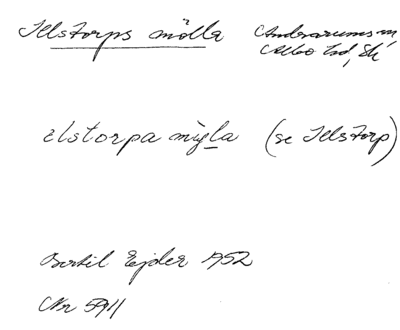 Ilstorps mölla Andrarums sn
Albo hd, Sk
ilstorpa mỳla (se Ilstorp)
Bertil Ejder 1952
Nr 5911